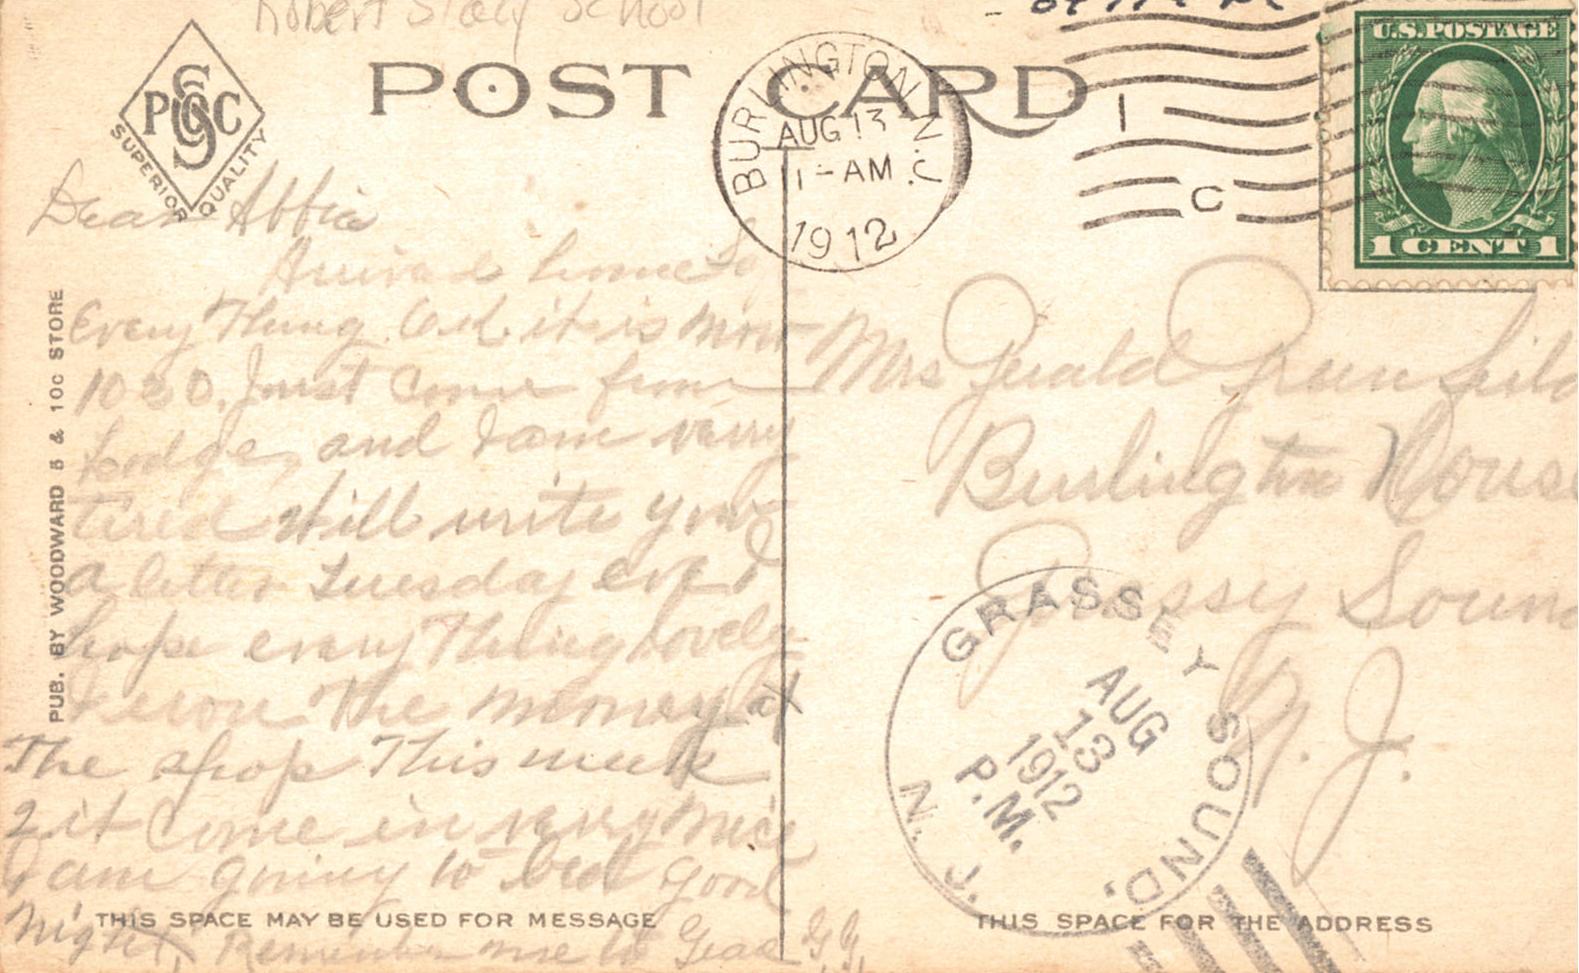 Robert Stacy School
POST CARD
PGC
SUPERIOR QUALITY
BURLINGTON
N.J.
AUG 13
1-AM
1912
1
C
U.S.POSTAGE
1 CENT 1
PUB. BY WOODWARD 5 & 10c STORE
Dear Abbie
Arrived home
Every Thing O.K. it is now
1030. Just Come from
Lodge, and I am verry
tired Will write you
a letter Tuesday eve I
hope every Thing lovely
the money at
The shop This week
it Come in verry nice
I am going to bed Good
Night, Remember me to G.G.
THIS SPACE MAY BE USED FOR MESSAGE
Mrs Gerald Greenfild
Burlington House
Grassy Sound
N. J.
GRASSEY SOUND.
N. J.
AUG
13
1912
P.M.
THIS SPACE FOR THE ADDRESS